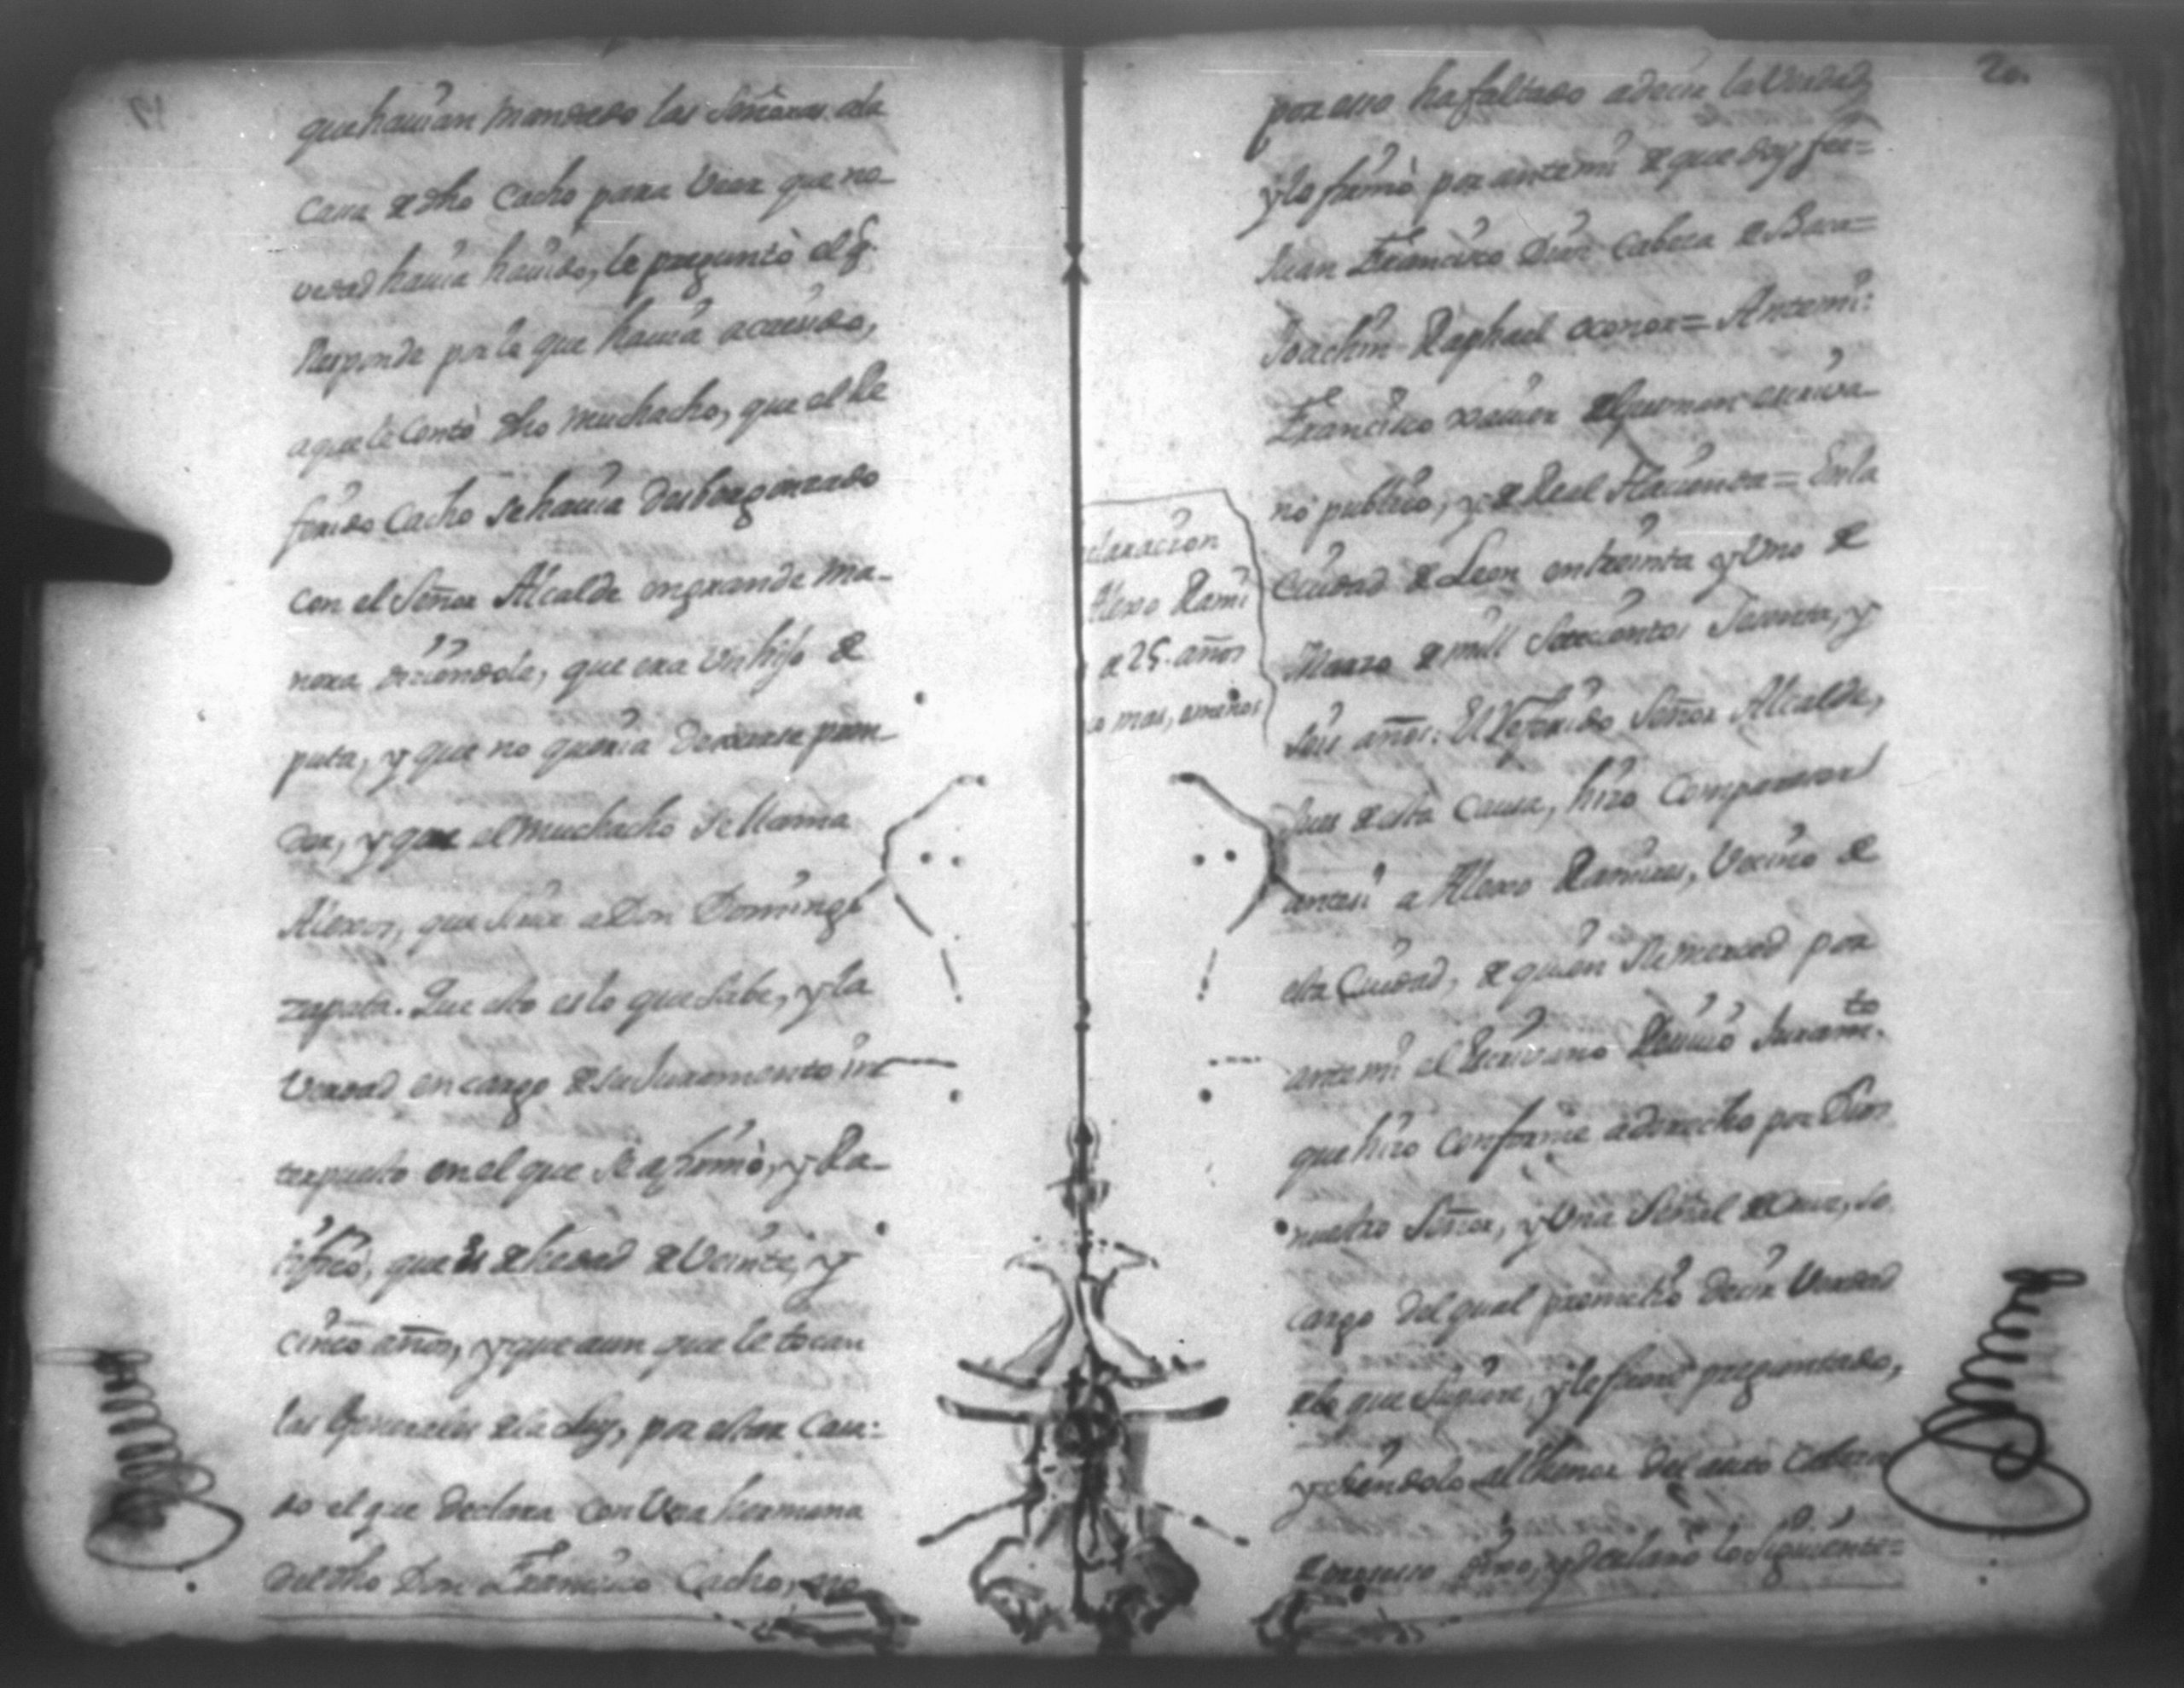 que havian mandado las Señoras a la
casa de dho Cacho para veer que no-
vedad havia havido, le preguntò el q.
responde por lo que havia acaesido,
a que le contò dho muchacho, que el Re
ferido Cacho se havia desbergonzado
con el Señor Alcalde en grande ma-
nera diziendole, que era Un hijo de
puta, y que no queria dexarse pren-
der, y que el muchacho se llama
Alexos, que sirve a Don Domingo
Zapata. Que esto es lo que sabe, y la
Verdad en cargo de su Juramento in
terpuesto en el que se afirmò, y Ra-
tificò, que es de hedad de Veinte, y
cinco años, y que aun que le tocan
las Generales de la Ley, por estar Casa-
do el que declara con Una hermana
del dho Don Francisco Cacho, no
20.
por esso ha faltado a decir la Verdad,
y lo firmò por ante mi de que doy fee=
Juan Francisco Dias Cabeza de Baca=
Joachin Raphael oconor= Ante mi:
Francisco Xavier de Guzman escriva-
no publico, y de Real Hacienda= En la
Ciudad de Leon en treinta y Uno de
Marzo de mill Setecientos Sesenta, y
seis años. El Referido Señor Alcalde,
Juez de esta Causa, hizo Comparecer
ante si a Alexo Ramires, Vecino de
esta Ciudad, de quien Su merced por
ante mi el Escrivano Reciviò Juramto.
que hizo conforme a derecho por Dios
nuestro Señor, y Una Señal de Cruz, so
cargo del qual prometiò decir Verdad
de lo que supiere, y le fuere preguntado,
y siendolo al thenor del auto Cabeza
de proceso dixo, y declarò lo siguiente=
claracion
Alexo Rami
de 25. años
mas, o menos